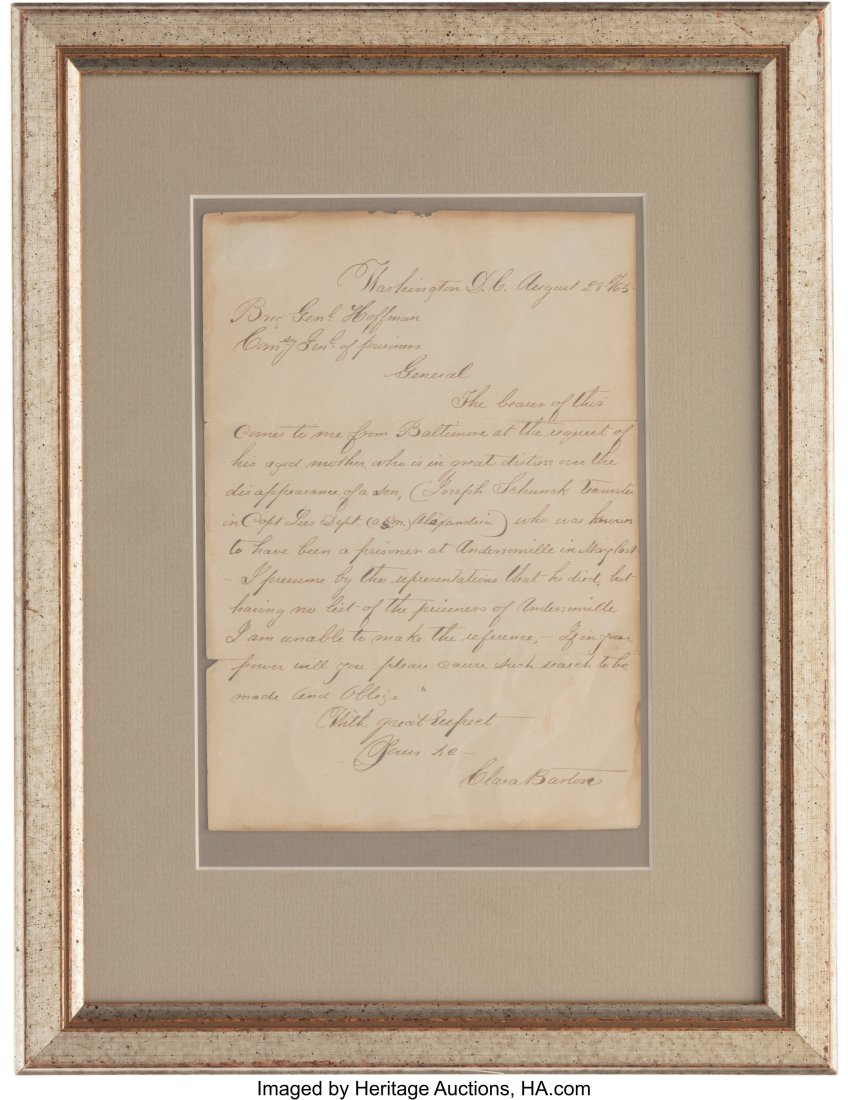 Washington D.C. August 28th/65
Brig Genl. Hoffman
Comsy Genl. of prisoners
General
The bearer of this
comes to me from Baltimore at the request of
his aged mother who is in great distress over the
disappearance of a son, (Joseph Schunck Teamster
in Capt Lees Dept. (aqm) Alexandria) who was known
to have been a prisoner at Andersonville in May last
- I presume by the representations that he died, but
having no list of the prisoners of Andersonville
I am unable to make the reference, - If in your
power will you please cause such search to be
made and Oblige
With great respect
Yours &c -
Clara Barton
Imaged by Heritage Auctions, HA.com